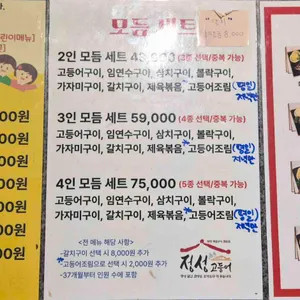 린이메뉴]
모듬 세트
2인 모듬 세트 43,000 (3종 선택/중복 가능)
고등어구이, 임연수구이, 삼치구이, 볼락구이,
가자미구이, 갈치구이, 제육볶음, 고등어조림
3인 모듬 세트 59,000 (4종 선택/중복 가능)
고등어구이, 임연수구이, 삼치구이, 볼락구이,
가자미구이, 갈치구이, 제육볶음, 고등어조림
4인 모듬 세트 75,000 (5종 선택/중복 가능)
고등어구이, 임연수구이, 삼치구이, 볼락구이,
가자미구이, 갈치구이, 제육볶음, 고등어조림
<전 메뉴 해당 사항>
-갈치구이 선택 시 8,000원 추가
고등어조림으로 선택 시 2,000원 추가
-37개월부터 인원 수에 포함
정성고등어
00원
00원
00원
00원
00원
00원